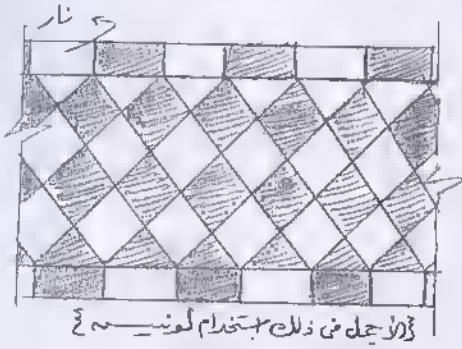 نار
{الأجمل فى ذلك استخدام لونيـــه}